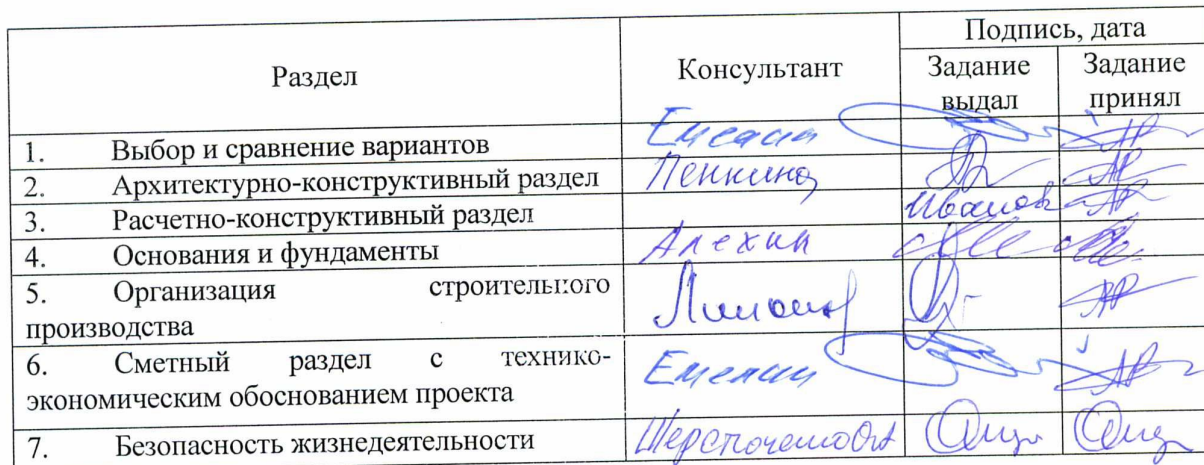 Раздел
Консультант
Подпись, дата
Задание выдал
Задание принял
1. Выбор и сравнение вариантов Емелин
2. Архитектурно-конструктивный раздел Пенкина
3. Расчетно-конструктивный раздел Иванов
4. Основания и фундаменты Алехин
5. Организация строительного
производства
6. Сметный раздел с технико-
экономическим обоснованием проекта Емелин
7. Безопасность жизнедеятельности